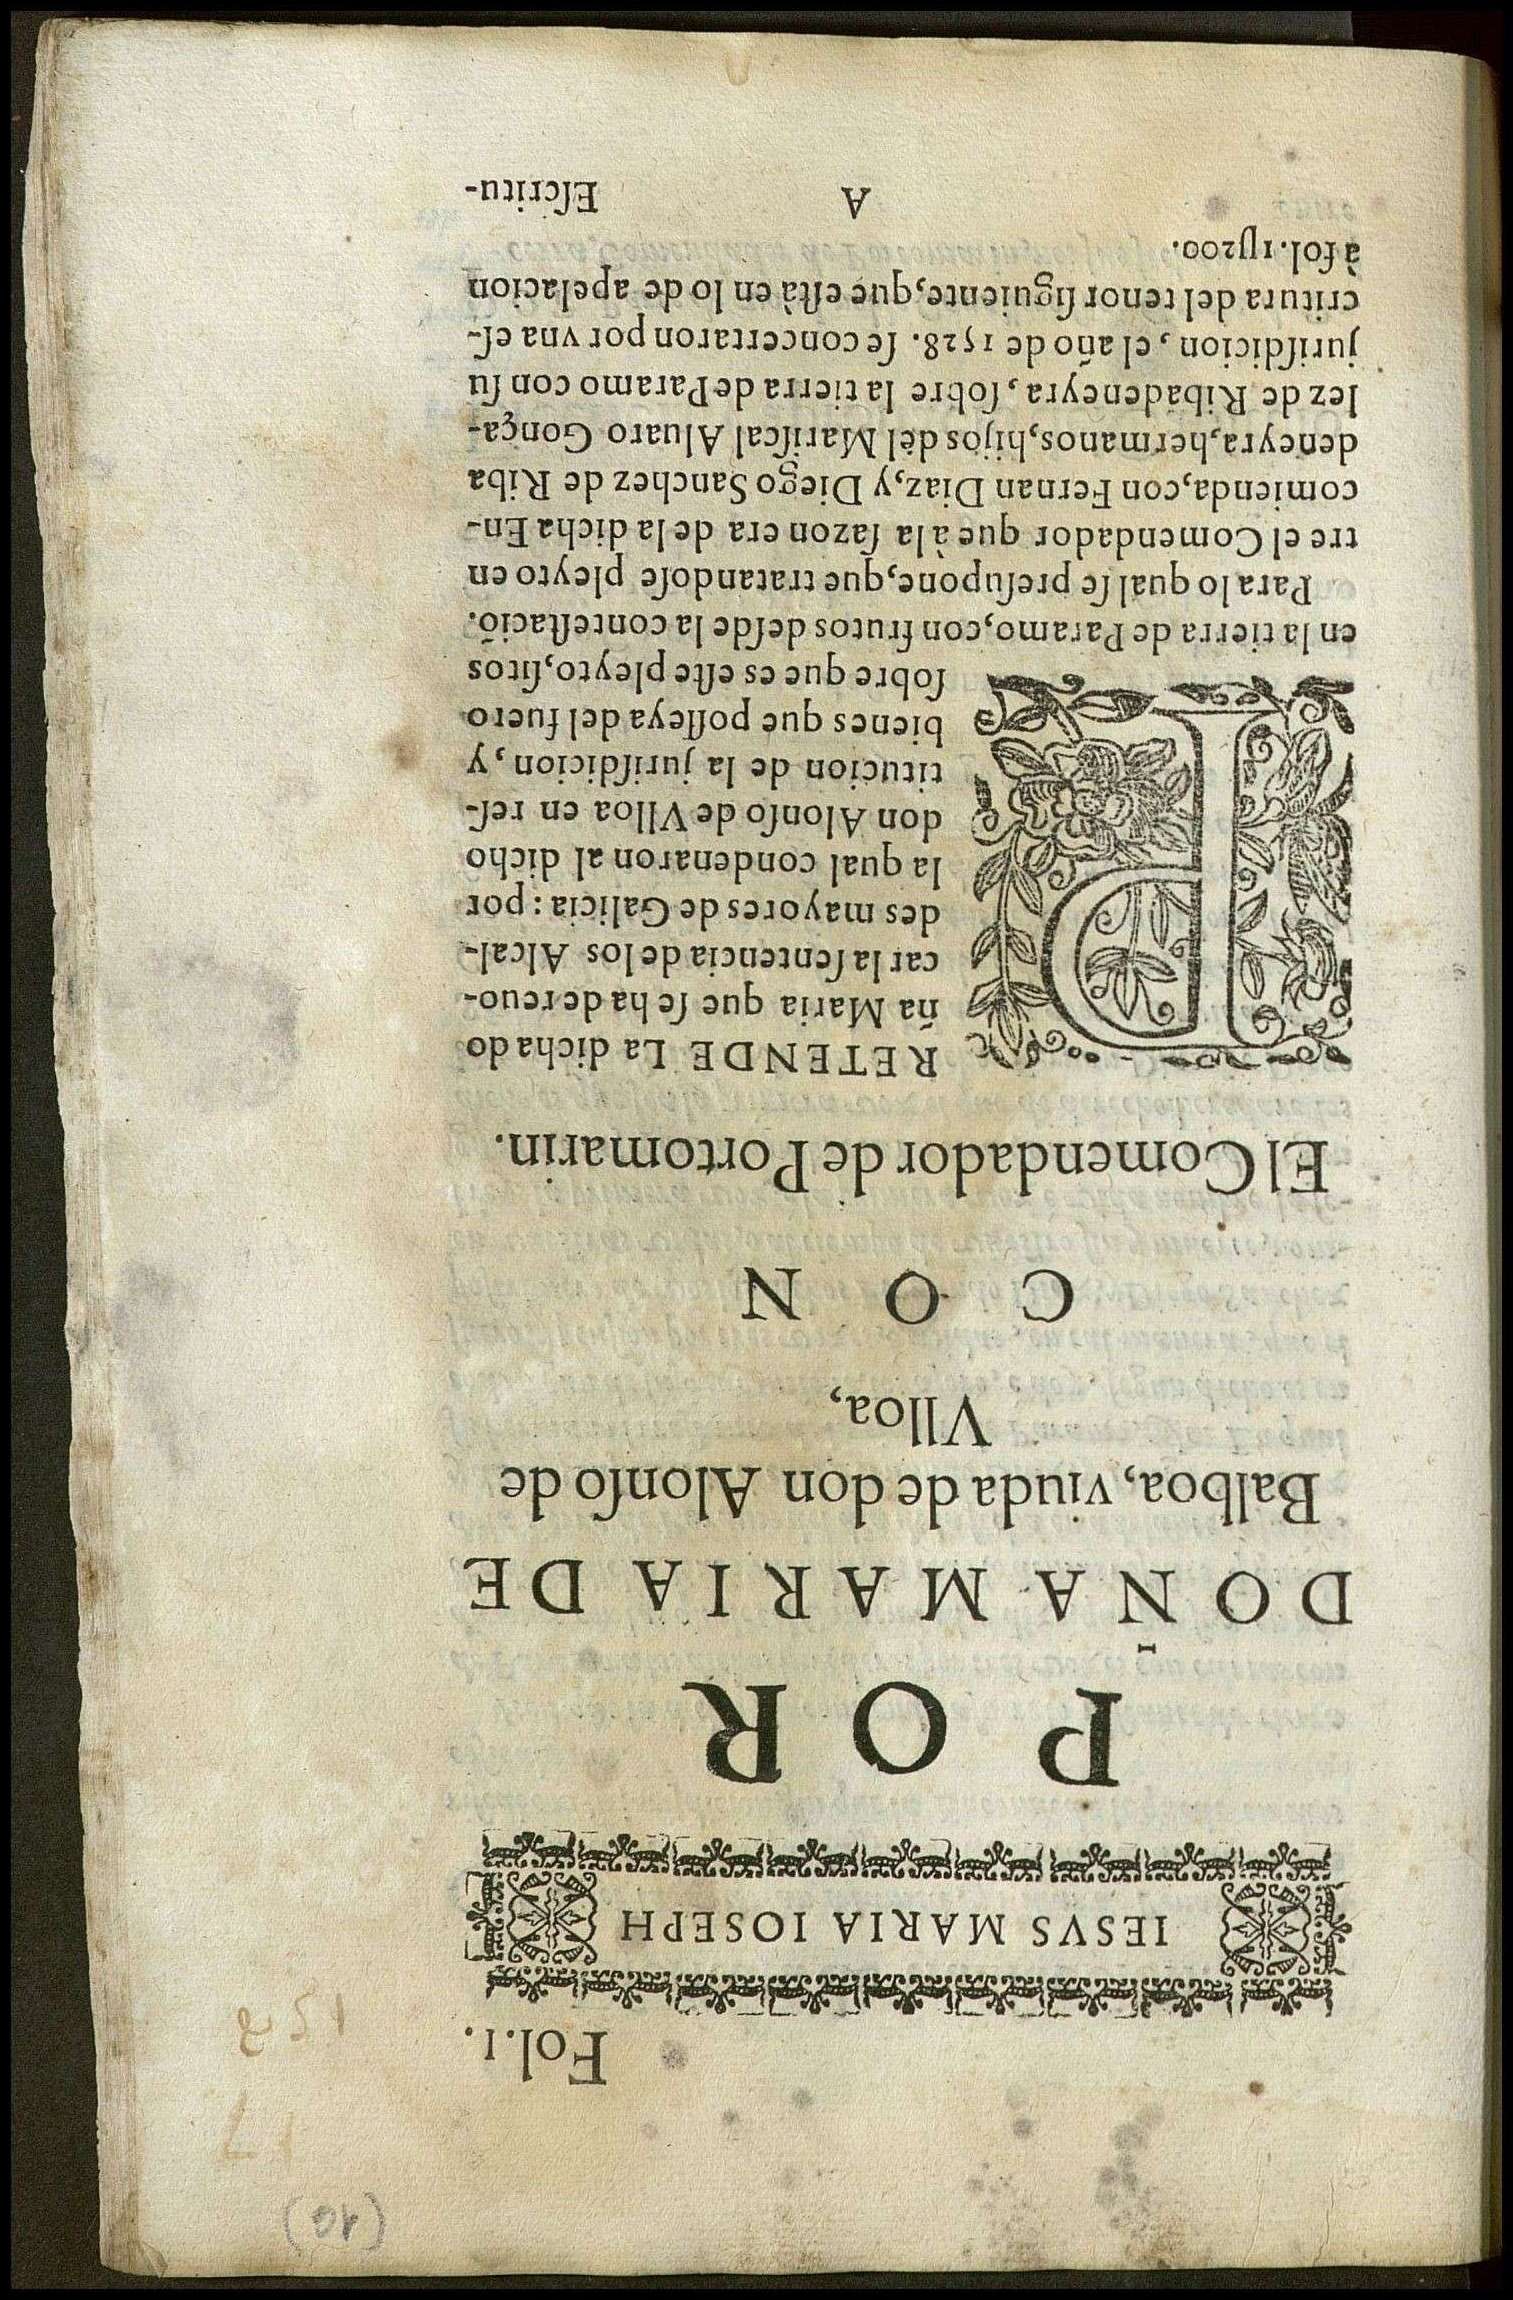 (10)
17
152
Fol.1.
IESVS MARIA IOSEPH
POR
DOÑA MARIA DE
Balboa, viuda de don Alonſo de
Vlloa,
CON
El Comendador de Portomarin.
PRETENDE La dicha do
ña Maria que ſe ha de reuo-
car la ſentencia de los Alcal-
des mayores de Galicia: por
la qual condenaron al dicho
don Alonſo de Vlloa en reſ-
titucion de la juriſdicion, y
bienes que poſſeya del fuero
ſobre que es eſte pleyto, ſitos
en la tierra de Paramo, con frutos deſde la conteſtació.
Para lo qual ſe preſupone, que tratandoſe pleyto en
tre el Comendador que à la ſazon era de la dicha En-
comienda, con Fernan Diaz, y Diego Sanchez de Riba
deneyra, hermanos, hijos del Mariſcal Aluaro Gonça-
lez de Ribadeneyra, ſobre la tierra de Paramo con ſu
juriſdicion, el año de 1528. ſe concertaron por vna eſ-
critura del tenor ſiguiente, que eſtà en lo de apelacion
à fol. 1y200.
A Eſcritu-